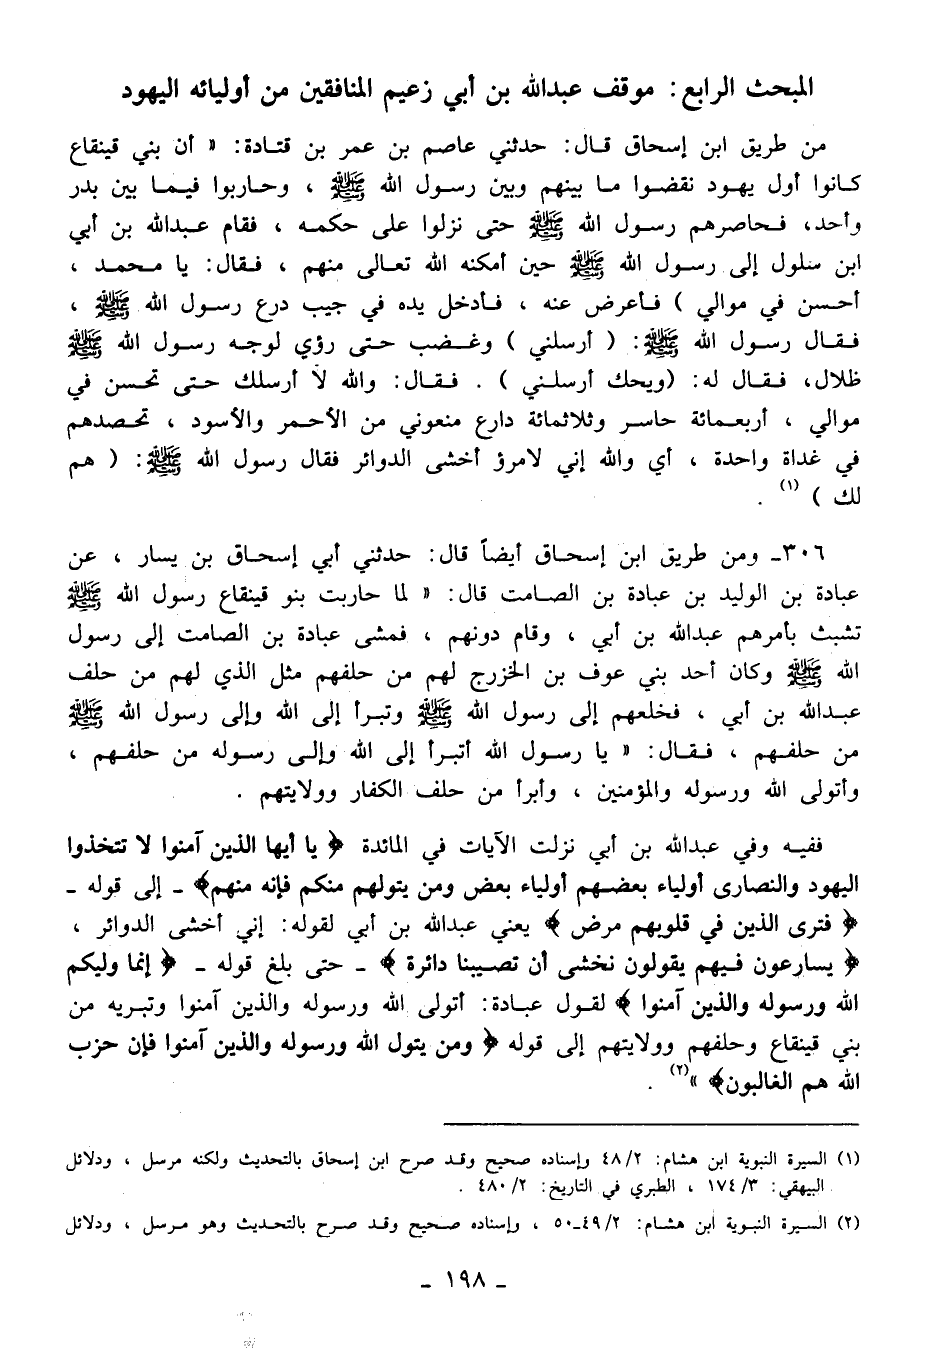 المبحث الرابع: موقف عبدالله بن أبي زعيم المنافقين من أوليائه اليهود
من طريق ابن إسحاق قال: حدثني عاصم بن عمر بن قتادة: « أن بني قينقاع
كانوا أول يهود نقضوا ما بينهم وبين رسول الله ﷺ ، وحاربوا فيما بين بدر
وأحد، فحاصرهم رسول الله ﷺ حتى نزلوا على حكمه ، فقام عبدالله بن أبي
ابن سلول إلى رسول الله ﷺ حين أمكنه الله تعالى منهم ، فقال: يا محمد ،
أحسن في موالي ) فأعرض عنه ، فأدخل يده في جيب درع رسول الله ﷺ ،
فقال رسول الله ﷺ: ( أرسلني ) وغضب حتى رؤي لوجه رسول الله ﷺ
ظلال، فقال له: (ويحك أرسلني ) . فقال: والله لا أرسلك حتى تحسن في
موالي ، أربعمائة حاسر وثلاثمائة دارع منعوني من الأحمر والأسود ، تحصدهم
في غداة واحدة ، أي والله إني لامرؤ أخشى الدوائر فقال رسول الله ﷺ: ( هم
لك ) (١) .
٣٠٦ـ ومن طريق ابن إسحاق أيضاً قال: حدثني أبي إسحاق بن يسار ، عن
عبادة بن الوليد بن عبادة بن الصامت قال: « لما حاربت بنو قينقاع رسول الله ﷺ
تشبث بأمرهم عبدالله بن أبي ، وقام دونهم ، فمشى عبادة بن الصامت إلى رسول
الله ﷺ وكان أحد بني عوف بن الخزرج لهم من حلفهم مثل الذي لهم من حلف
عبدالله بن أبي ، فخلعهم إلى رسول الله ﷺ وتبرأ إلى الله وإلى رسول الله ﷺ
من حلفهم ، فقال: « يا رسول الله أتبرأ إلى الله وإلى رسوله من حلفهم ،
وأتولى الله ورسوله والمؤمنين ، وأبرأ من حلف الكفار وولايتهم .
ففيه وفي عبدالله بن أبي نزلت الآيات في المائدة ﴿ يا أيها الذين آمنوا لا تتخذوا
اليهود والنصارى أولياء بعضهم أولياء بعض ومن يتولهم منكم فإنه منهم﴾ ـ إلى قوله ـ
﴿ فترى الذين في قلوبهم مرض ﴾ يعني عبدالله بن أبي لقوله: إني أخشى الدوائر ،
﴿ يسارعون فيهم يقولون نخشى أن تصيبنا دائرة ﴾ ـ حتى بلغ قوله ـ ﴿ إنما وليكم
الله ورسوله والذين آمنوا ﴾ لقول عبادة: أتولى الله ورسوله والذين آمنوا وتبريه من
بني قينقاع وحلفهم وولايتهم إلى قوله ﴿ ومن يتول الله ورسوله والذين آمنوا فإن حزب
الله هم الغالبون﴾ »(٢) .
(١) السيرة النبوية ابن هشام: ٤٨/٢ وإسناده صحيح وقد صرح ابن إسحاق بالتحديث ولكنه مرسل ، ودلائل
البيهقي: ١٧٤/٣ ، الطبري في التاريخ: ٤٨٠/٢ .
(٢) السيرة النبوية ابن هشام: ٤٩/٢ـ٥٠ ، وإسناده صحيح وقد صرح بالتحديث وهو مرسل ، ودلائل
ـ ١٩٨ ـ